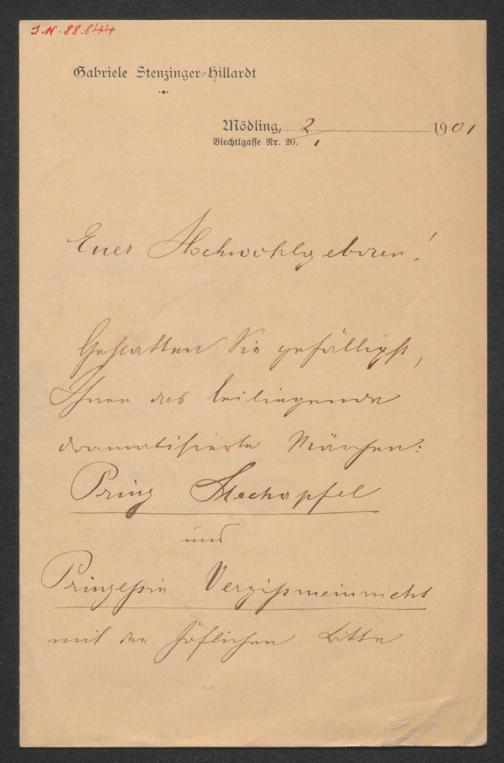 J.N. 88.844
Gabriele Stenzinger-Hillardt
Mödling, 2/1 1901
Viechtlgasse Nr. 20.
Euer Hochwohlgeboren!
Gestatten Sie gefälligst,
Ihnen das beiliegende
dramatisierte Märchen:
Prinz Stechapfel
und
Prinzeßin Vergißmeinnicht
mit der höflichen Bitte